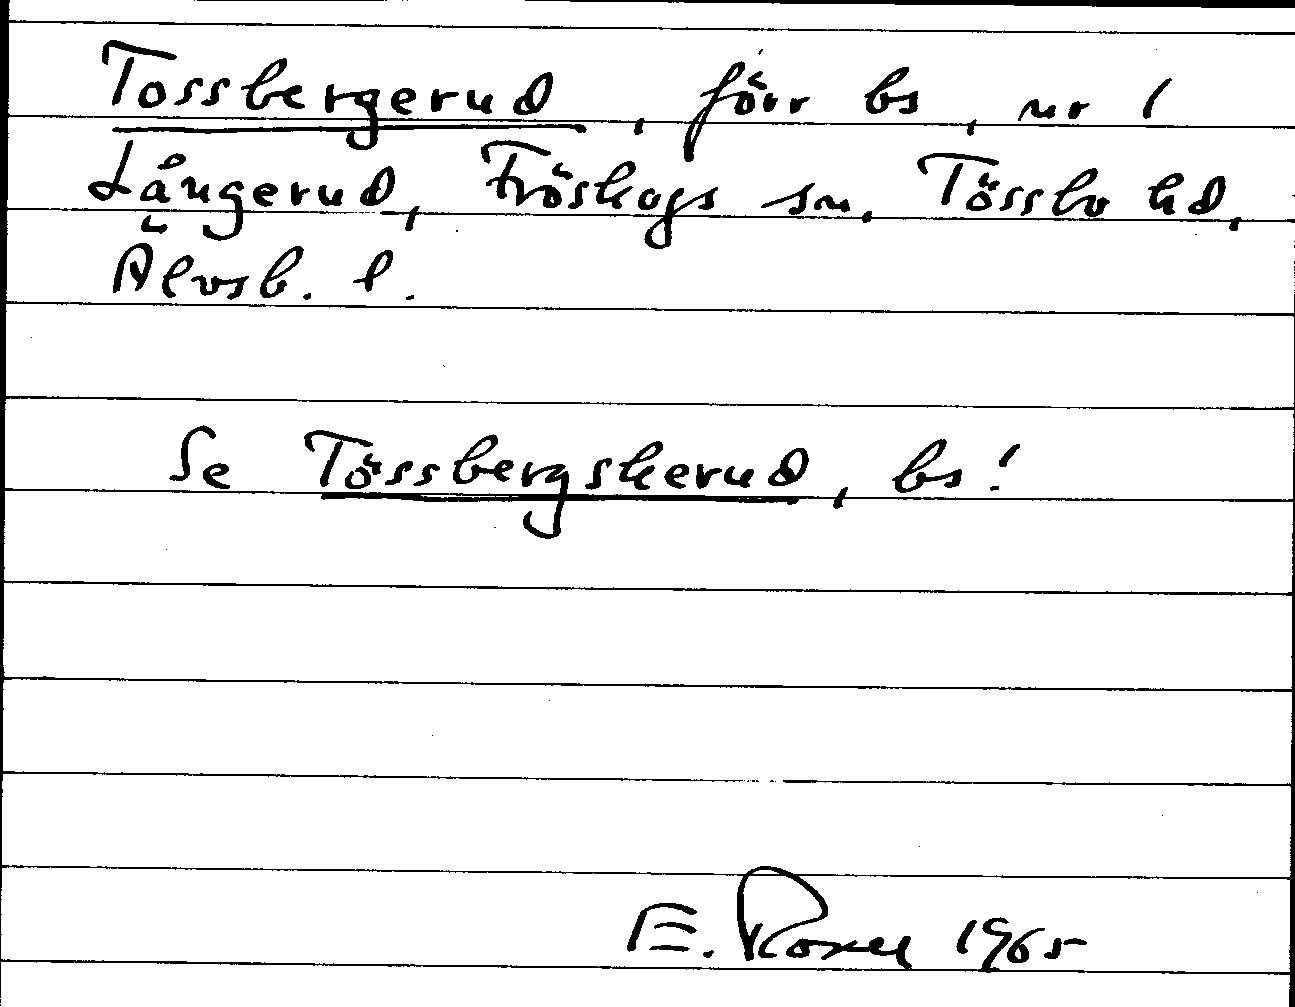 Tossbergerud, förr bs, nr 1
Långerud, Fröskogs sn. Tössbo hd.
Älvsb. l.
Se Tössbergskerud, bs!
E. Roxell 1965